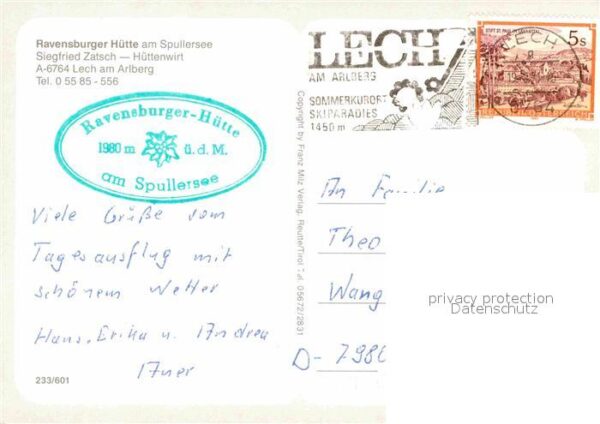 Ravensburger Hütte am Spullersee
Siegfried Zatsch — Hüttenwirt
A-6764 Lech am Arlberg
Tel. 0 55 85 - 556
Ravensburger-Hütte
1980 m ü. d. M.
am Spullersee
Viele Grüße vom
Tagesausflug mit
schönem Wetter
Hans, Erika u. Andrea
233/601
Copyright by Franz Milz Verlag, Reutte/Tirol Tel. 05672/2831
LECH
AM ARLBERG
SOMMERKURORT
SKIPARADIES
1450 m
5s
LECH
An Familie
Theo
Wang
D-798
privacy protection
Datenschutz